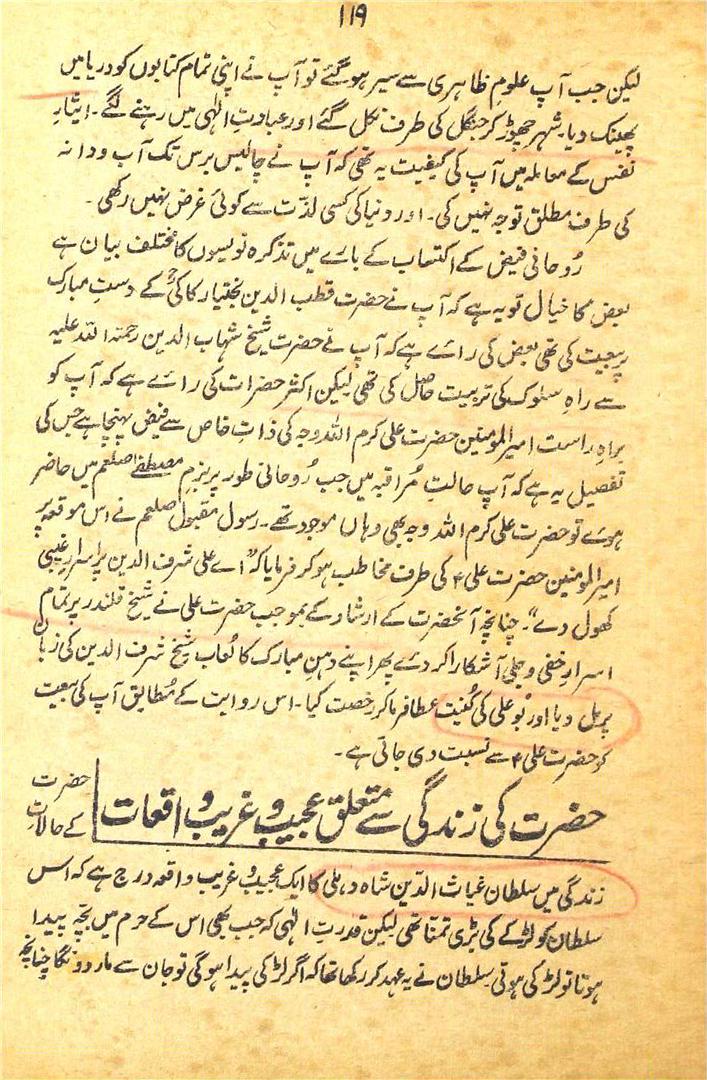 ۱۱۹
لیکن جب آپ علومِ ظاہری سے سیر ہوگئے تو آپ نے اپنی تمام کتابوں کو دریا میں
پھینک دیا۔ شہر چھوڑ کر جنگل کی طرف نکل گئے اور عبادتِ الٰہی میں رہنے لگے۔ ایثارِ
نفس کے معاملہ میں آپ کی کیفیت یہ تھی کہ آپ نے چالیس برس تک آب و دانہ
کی طرف مطلق توجہ نہیں کی۔ اور دنیا کی کسی لذّت سے کوئی غرض نہیں رکھی۔
رُوحانی فیض کے اکتساب کے بارے میں تذکرہ نویسوں کا مختلف بیان ہے
بعض کا خیال تو یہ ہے کہ آپ نے حضرت قطب الدین بختیار کاکیؒ کے دستِ مبارک
پر بیعت کی تھی بعض کی رائے ہے کہ آپ نے حضرت شیخ شہاب الدین رحمتہ اللہ علیہ
سے راہِ سلوک کی تربیت حاصل کی تھی لیکن اکثر حضرات کی رائے ہے کہ آپ کو
براہِ راست امیر المومنین حضرت علی کرم اللہ وجہ کی ذاتِ خاص سے فیض پہنچا ہے جس کی
تفصیل یہ ہے کہ آپ حالتِ مُراقبہ میں جب رُوحانی طور پر بزمِ مصطفےٰ صلعم میں حاضر
ہوئے تو حضرت علی کرم اللہ وجہ بھی وہاں موجود تھے۔ رسول مقبول صلعم نے اس موقعہ پر
امیر المومنین حضرت علی ؑ کی طرف مخاطب ہو کر فرمایا کہ "اے علی شرف الدین پر اسرارِ غیبی
کھول دے"۔ چنانچہ آنحضرت کے ارشاد کے بموجب حضرت علی نے شیخ قلندر پر تمام
اسرارِ خفی و جلی آشکارا کر دئے پھر اپنے دہنِ مبارک کا لُعاب شیخ شرف الدین کی زبان
پر مل دیا اور بُو علی کی کُنیت عطا فرما کر رخصت کیا۔ اس روایت کے مُطابق آپ کی بیعت
کو حضرت علی ؑ سے نسبت دی جاتی ہے۔
حضرت کی زندگی سے متعلق عجیب و غریب واقعات
حضرت
کے حالاتِ
زندگی میں سلطان غیاث الدّین شاہ دہلی کا ایک عجیب و غریب واقعہ درج ہے کہ اس
سلطان کو لڑکے کی بڑی تمنّا تھی لیکن قدرتِ الٰہی کہ جب بھی اس کے حرم میں بچّہ پیدا
ہوتا تو لڑکی ہوتی۔ سلطان نے یہ عہد کر رکھا تھا کہ اگر لڑکی پیدا ہوگی تو جان سے مار دونگا چنانچہ